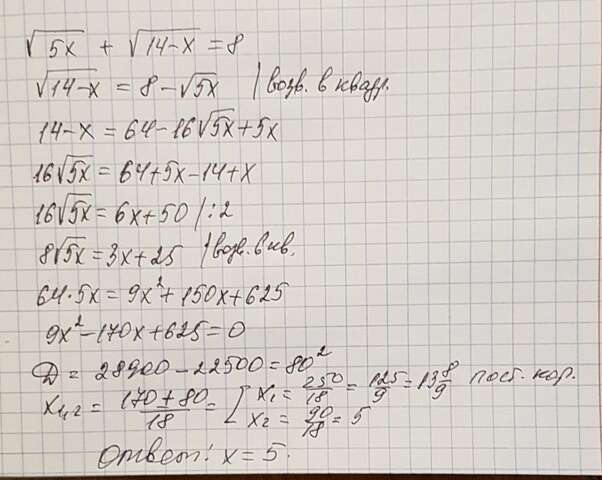 √5x + √14-x = 8
√14-x = 8 - √5x | возв. в квадр.
14-x = 64-16√5x+5x
16√5x = 64+5x-14+x
16√5x = 6x+50 | :2
8√5x = 3x+25 | возв. в кв.
64·5x = 9x²+150x+625
9x²-170x+625=0
D = 28900-22500=80²
x₁,₂ = (170±80)/18 = [ x₁ = 250/18 = 125/9 = 13 8/9 пост. кор.
x₂ = 90/18 = 5
Ответ: x = 5.